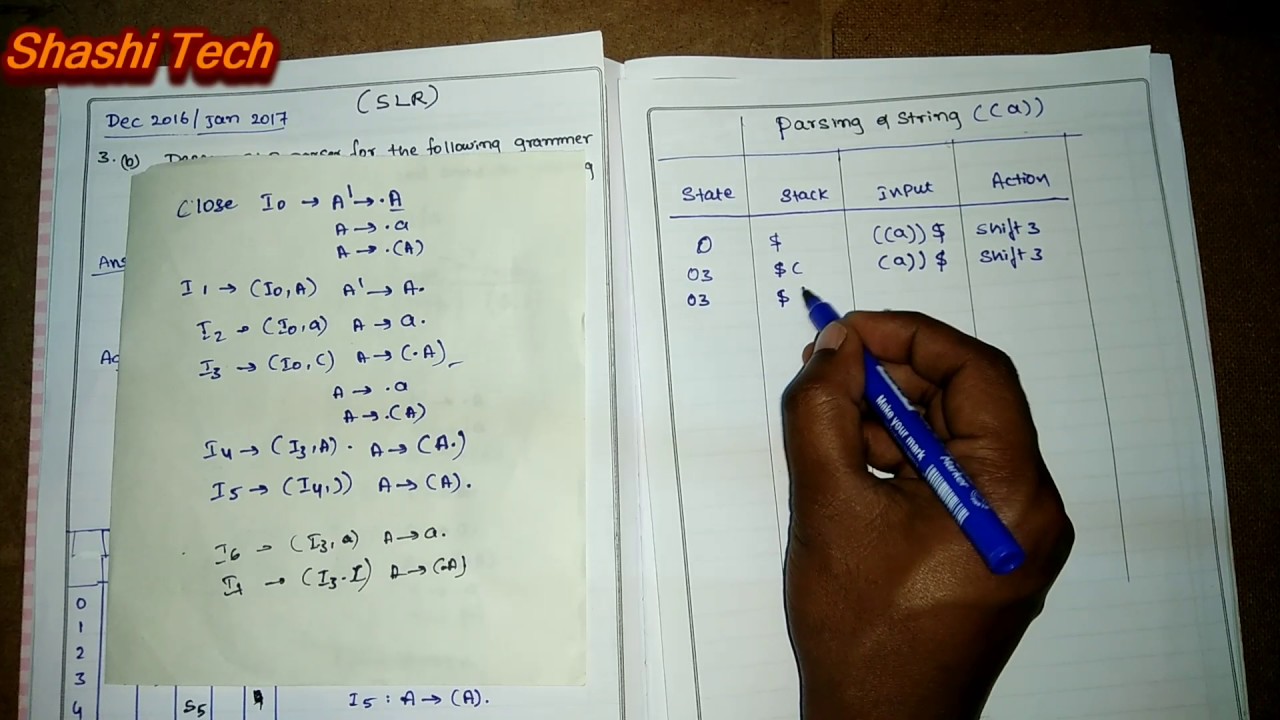 Shashi Tech
(SLR)
Dec 2016/Jan 2017
3. (b) for the following grammer
Close I0 → A' → .A
A → .a
A → .(A)
I1 → (I0,A) A' → A.
I2 → (I0,a) A → a.
I3 → (I0,() A → (.A)
A → .a
A → .(A)
I4 → (I3,A) . A → (A.)
I5 → (I4,)) A → (A).
I6 → (I3,a) A → a.
Ans
0
1
2
3
4 S5
I5 : A → (A).
Parsing of string ((a))
State Stack Input Action
0 $ ((a))$ Shift 3
03 $( (a))$ Shift 3
03 $
Make your mark
Marker